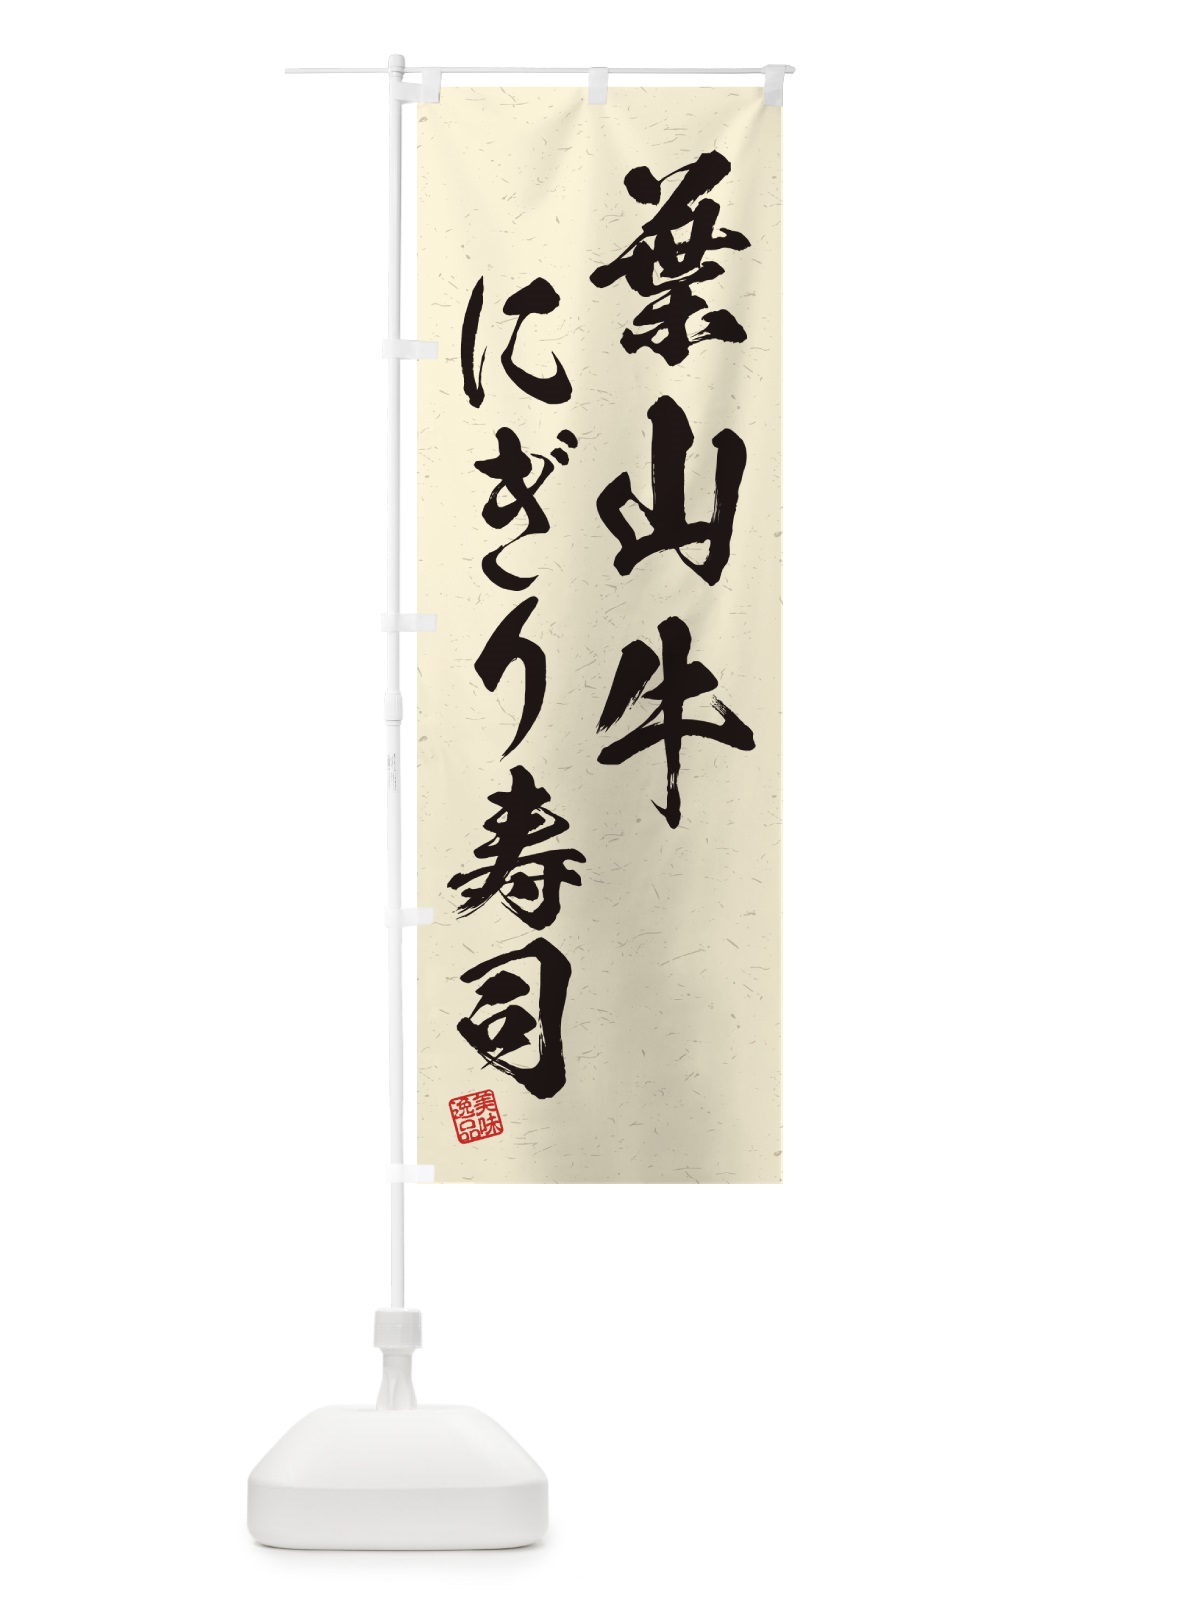 葉山牛
にぎり寿司
美味
逸品